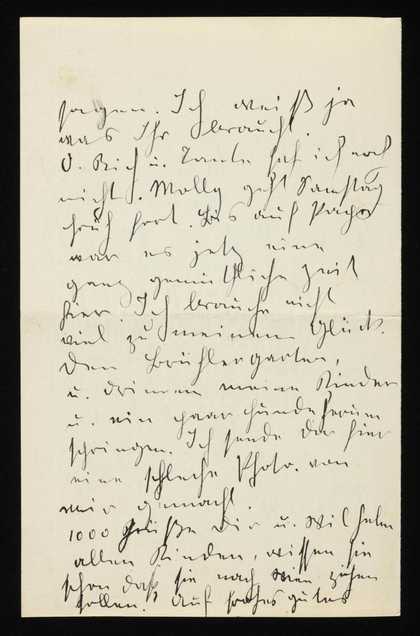 sagen. Ich weiß ja
was Ihr braucht.
O. Rich u. Tante hab ich noch
nicht. Molly geht Samstag
früh fort. Bis auf Papa
war es jetz eine
ganz gemütliche Zeit
hier. Ich brauche nicht
viel zu meinem Glück.
Den Brühlergarten,
u. drinnen meine Kinder
u. ein paar Hunde herum
springen. Ich sende dir hier
eine schlechte Photo. von
mir gemacht.
1000 Grüße dir u. Wilhelm
allen Kindern, wissen sie
schon daß sie nach Wien ziehen
sollen? Auf frohes gutes